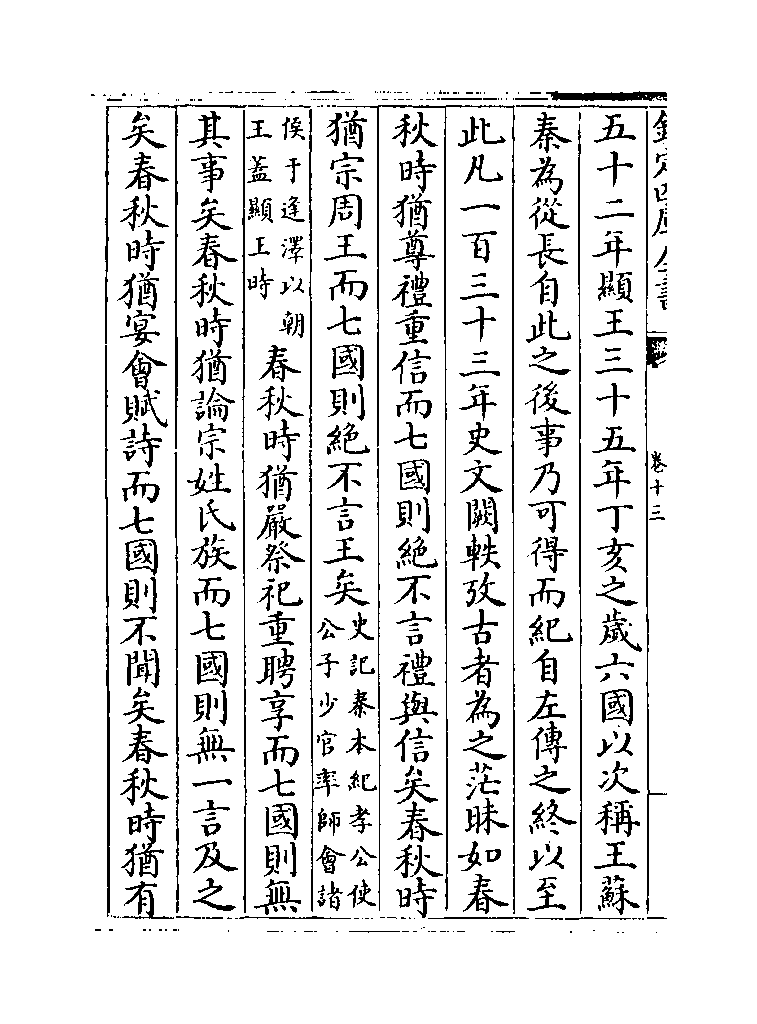 欽定四庫全書
卷十三
五十二年顯王三十五年丁亥之歲六國以次稱王蘇
秦為從長自此之後事乃可得而紀自左傳之終以至
此凡一百三十三年史文闕軼攷古者為之茫昧如春
秋時猶尊禮重信而七國則絕不言禮與信矣春秋時
猶宗周王而七國則絕不言王矣史記秦本紀孝公使
公子少官率師會諸
侯于逢澤以朝
王蓋顯王時春秋時猶嚴祭祀重聘享而七國則無
其事矣春秋時猶論宗姓氏族而七國則無一言及之
矣春秋時猶宴會賦詩而七國則不聞矣春秋時猶有